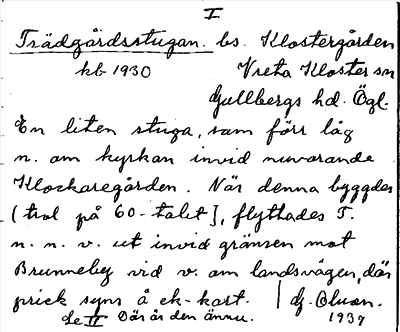 I
Trädgårdsstugan. bs. Klostergården
kb 1930 Vreta Kloster sn
Gullbergs hd. Ögl.
En liten stuga, som förr låg
n. om kyrkan invid nuvarande
Klockaregården. När denna byggdes
(trol på 60-talet), flyttades T.
n. n. v. ut invid gränsen mot
Brunneby vid v. om landsvägen, där
prick syns å ek-kart.
Se II Där är den ännu. 1937